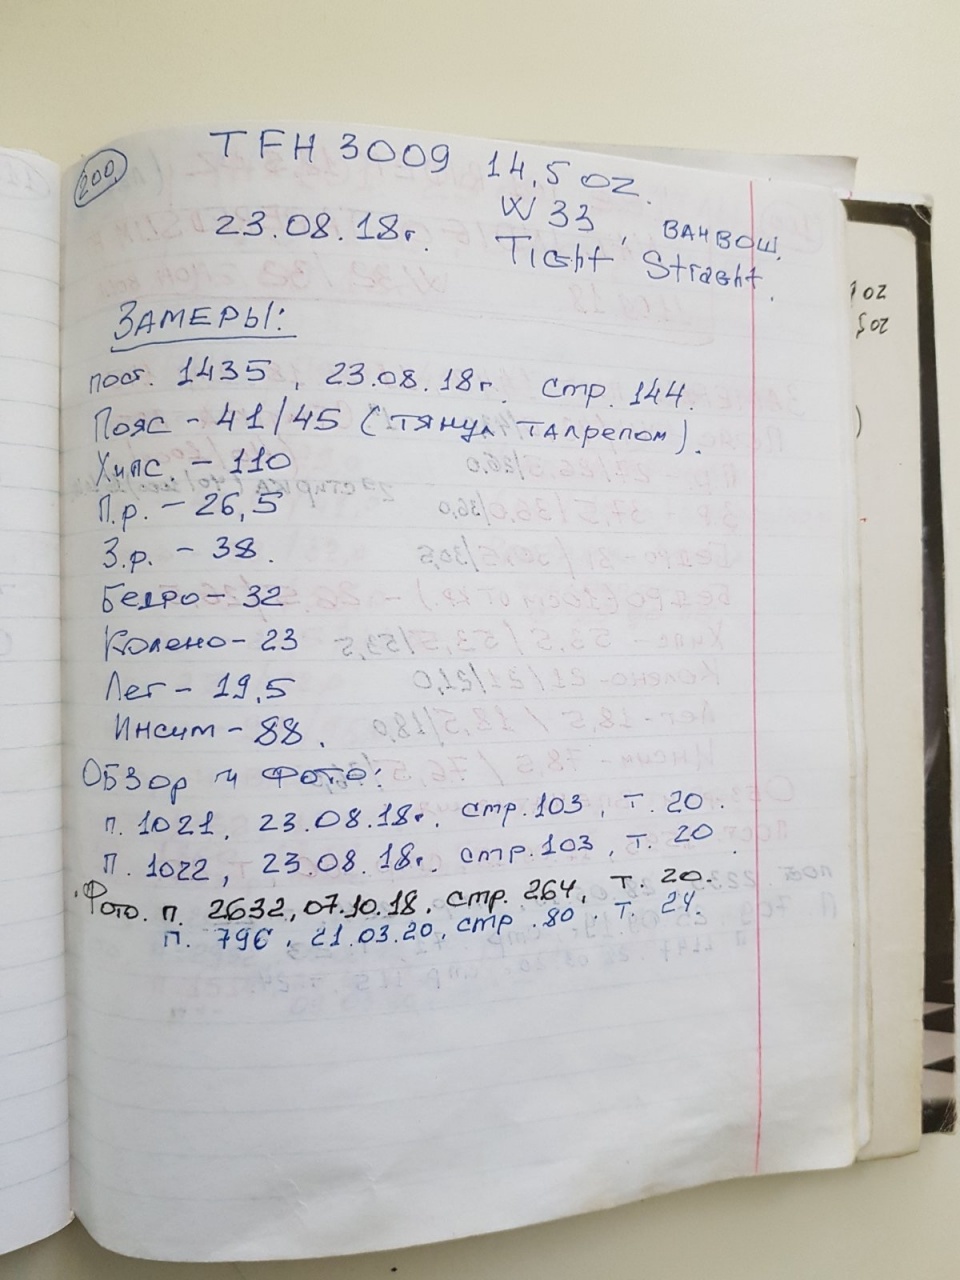 200
TFH 3009 14,5 oz.
23.08.18г. W 33, ванвош.
Tight Straght.
Замеры:
пост. 1435, 23.08.18г. стр. 144.
Пояс - 41/45 (тянул талрепом).
Хипс. - 110
П.р. - 26,5
З.р. - 38.
Бедро - 32
Колено - 23
Лег - 19,5
Инсим - 88.
Обзор и фото:
п. 1021, 23.08.18г. стр. 103, т. 20.
п. 1022, 23.08.18г. стр. 103, т. 20.
Фото. п. 2632, 07.10.18. стр. 264, т. 20.
п. 796, 21.03.20, стр. 80, т. 24.